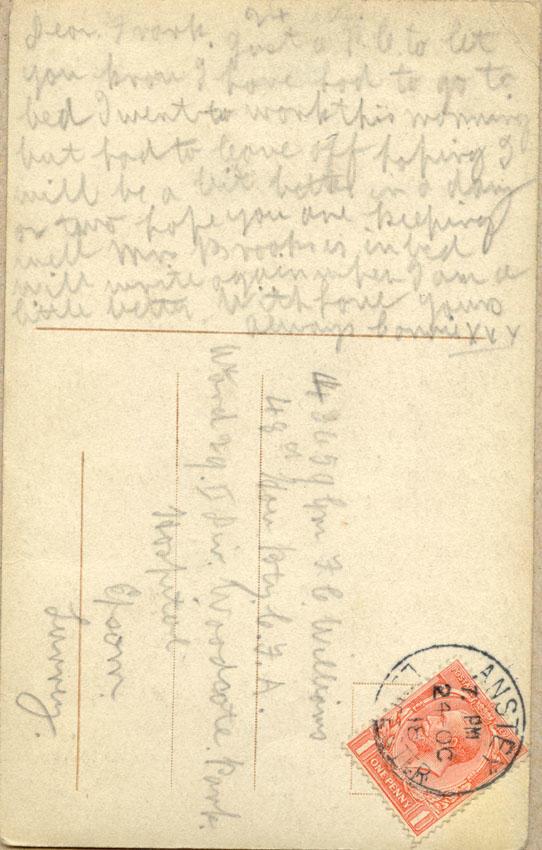 24
Dear Frank. Just a P.C. to let
you know I have had to go to
bed I went to work this morning
but had to leave off hoping I
will be a bit better in a day
or two hope you are keeping
well Mrs Brooks is in bed
will write again when I am a
little better. With love yours
always Connie xxx
43659 Gnr F. C. Williams
48th How Bty C. F. A.
Ward 29. Div. Woodcote Park.
Hospital
Epsom.
Surrey.
ANSTEY
7. PM
24 OC
16
POSTAGE
ONE PENNY
1 1